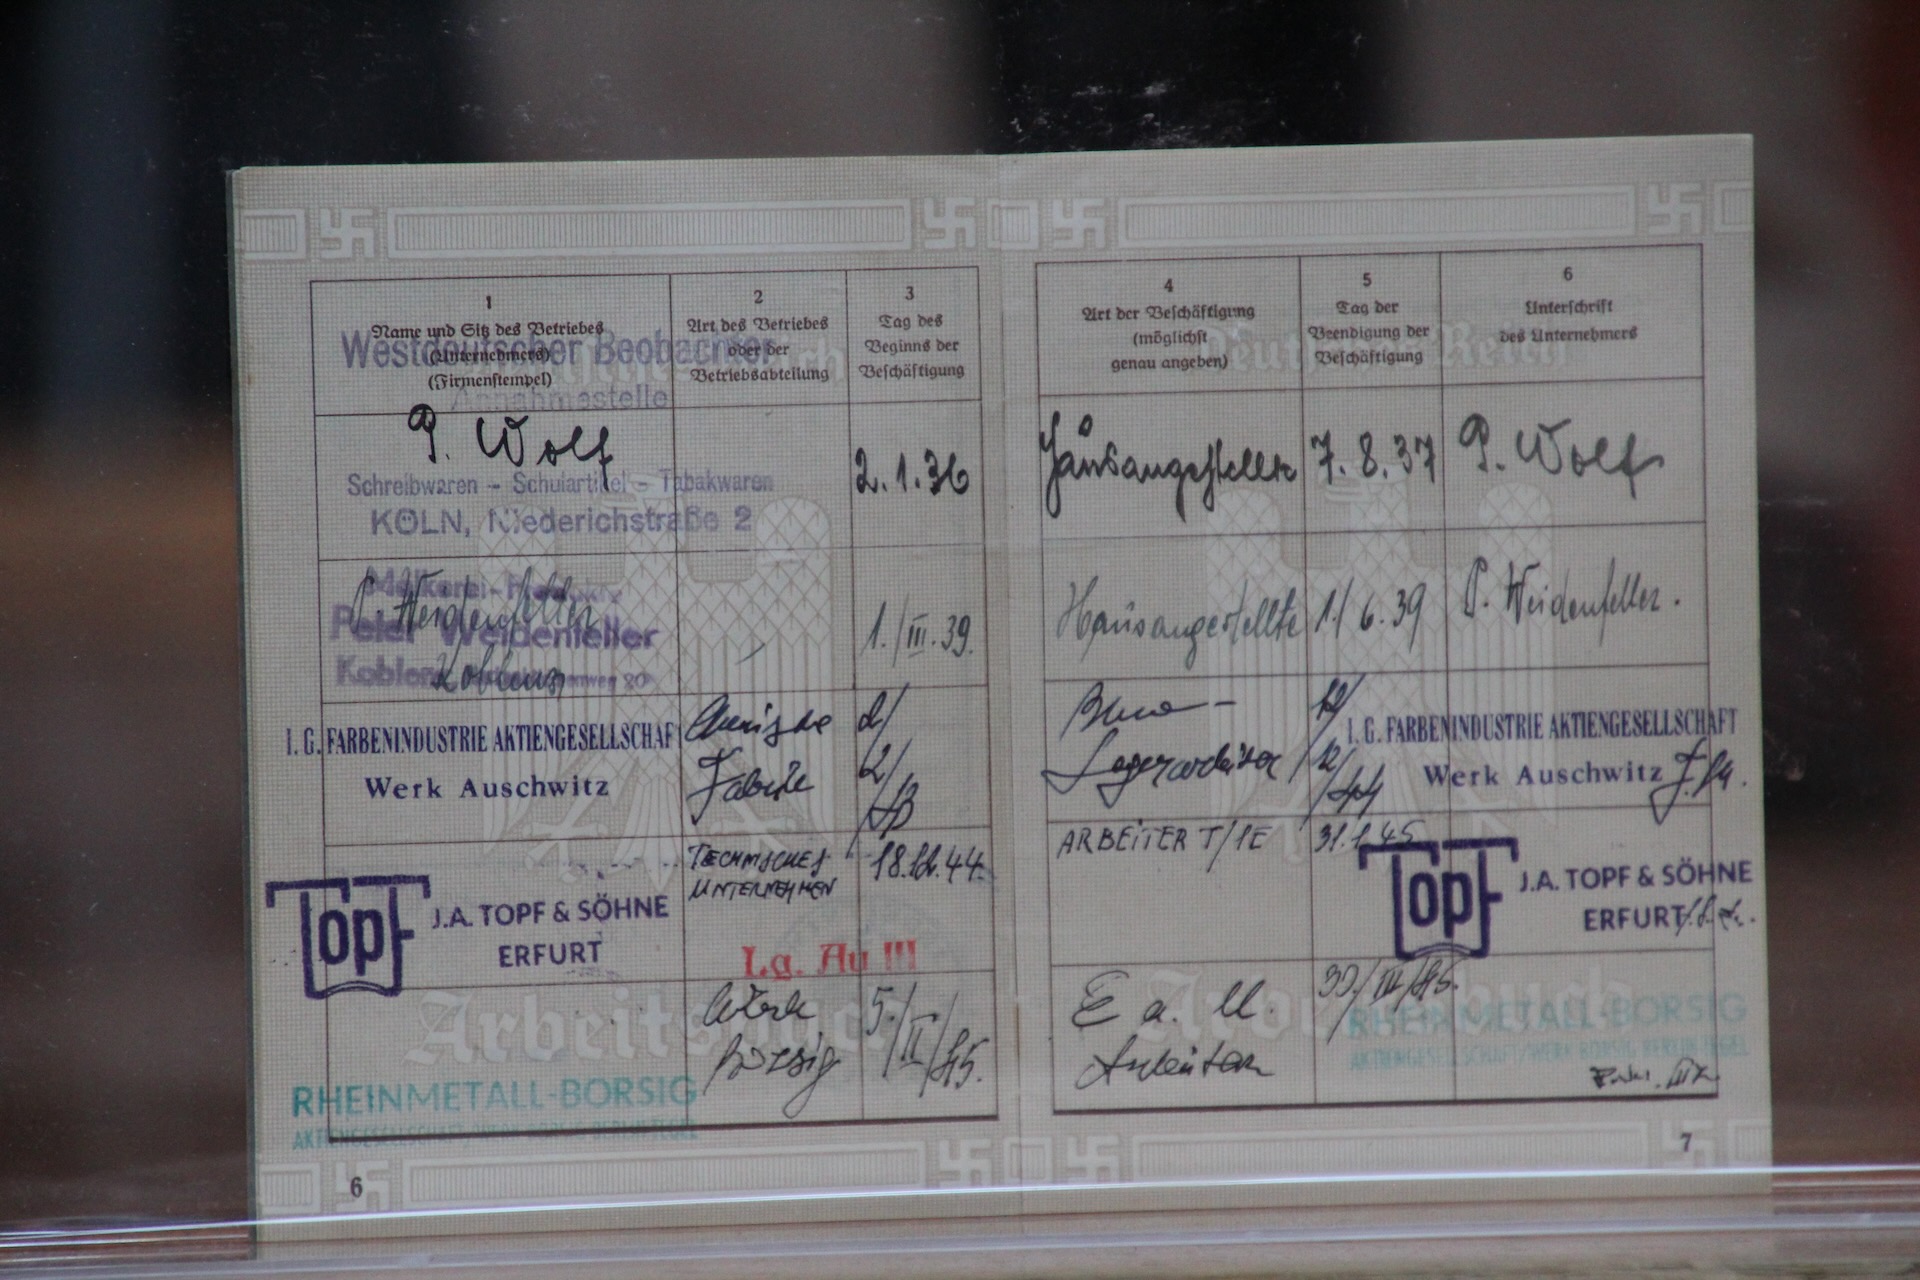 1
Name und Sitz des Betriebes
(Unternehmers)
(Firmenstempel)
2
Art des Betriebes
oder der
Betriebsabteilung
3
Tag des
Beginns der
Beschäftigung
Westdeutscher Beobachter
Annahmestelle
P. Wolf
Schreibwaren - Schulartikel - Tabakwaren
KÖLN, Niederichstraße 2
2.1.36
Molkerei-
Peter Weidenfeller
Koblenz
P. Weidenfeller
Koblenz
1./III.39.
I. G. FARBENINDUSTRIE AKTIENGESELLSCHAF
Werk Auschwitz
Fabrik
TOPF J.A. TOPF & SÖHNE
ERFURT
TECHNISCHES
UNTERNEHMEN
18.12.44
Lg. Au III
Werk
Borsig
5./II/45.
RHEINMETALL-BORSIG
AKTIENGESELLSCHAFT/WERK BORSIG BERLIN-TEGEL
Arbeitsbuch
6
4
Art der Beschäftigung
(möglichst
genau angeben)
5
Tag der
Beendigung der
Beschäftigung
6
Unterschrift
des Unternehmers
Deutsches Reich
Hausangestellte 7.8.37 P. Wolf
Hausangestellte 1./6.39 P. Weidenfeller.
Lagerarbeiter
I. G. FARBENINDUSTRIE AKTIENGESELLSCHAFT
Werk Auschwitz
ARBEITER T/1E
31.1.45
TOPF J.A. TOPF & SÖHNE
ERFURT
E a. U.
Arbeiter
30/III/45.
Arbeitsbuch
RHEINMETALL-BORSIG
AKTIENGESELLSCHAFT/WERK BORSIG BERLIN-TEGEL
7